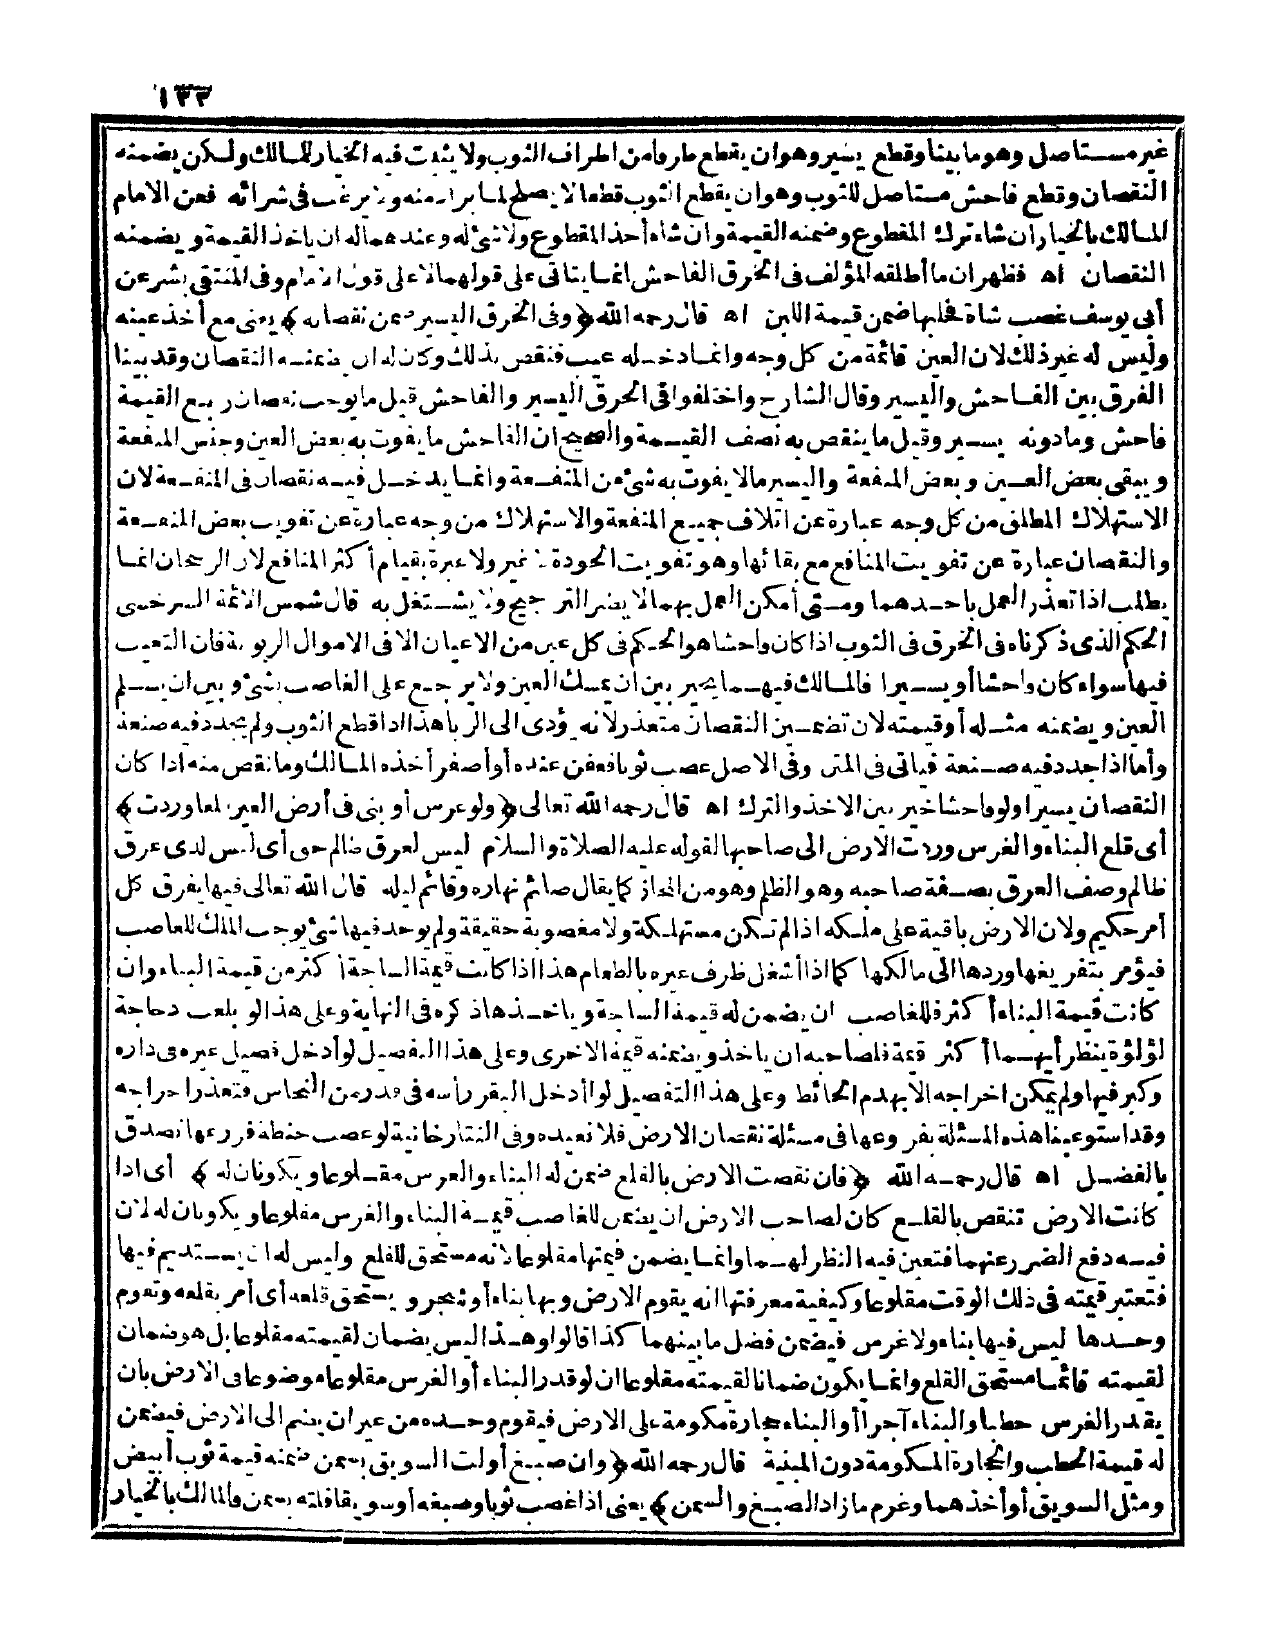 ١٣٣
غير مستأصل وهو ما بينا وقطع يسير وهو ان يقطع طرفا من اطراف الثوب ولا يثبت فيه الخيار للمالك ولكن يضمنه
النقصان وقطع فاحش مستاصل للثوب وهو ان يقطع الثوب قطعا لا يصلح لما يراد منه ولا يرغب فى شرائه فعن الامام
المالك بالخيار ان شاء ترك المقطوع وضمنه القيمة وان شاء أخذ المقطوع ولا شئ له وعندهما له ان ياخذ القيمة ويضمنه
النقصان اه فظهر ان ما أطلقه المؤلف فى الخرق الفاحش انما يتاتى على قولهما لا على قول الامام وفى المنتقى بشر عن
أبى يوسف غصب شاة فحلبها ضمن قيمة اللبن اه قال رحمه الله ﴿وفى الخرق اليسير ضمن نقصانه﴾ يعنى مع أخذ عينه
وليس له غير ذلك لان العين قائمة من كل وجه وانما دخله عيب فنقص بذلك وكان له ان يضمنه النقصان وقد بينا
الفرق بين الفاحش واليسير وقال الشارح واختلفوا فى الخرق اليسير والفاحش قيل ما يوجب نقصان ربع القيمة
فاحش وما دونه يسير وقيل ما ينقص به نصف القيمة والصحيح ان الفاحش ما يفوت به بعض العين وجنس المنفعة
ويبقى بعض العين وبعض المنفعة واليسير ما لا يفوت به شئ من المنفعة وانما يدخل فيه نقصان فى المنفعة لان
الاستهلاك المطلق من كل وجه عبارة عن اتلاف جميع المنفعة والاستهلاك من وجه عبارة عن تفويت بعض المنفعة
والنقصان عبارة عن تفويت المنافع مع بقائها وهو تفويت الجودة لا غير ولا عبرة بقيام أكثر المنافع لان الرجحان انما
يطلب اذا تعذر العمل باحدهما ومتى أمكن العمل بهما لا يضر الترجيح ولا يشتغل به قال شمس الائمة السرخسى
الحكم الذى ذكرناه فى الخرق فى الثوب اذا كان فاحشا هو الحكم فى كل عين من الاعيان الا فى الاموال الربوية فان التعيب
فيها سواء كان فاحشا أو يسيرا فالمالك فيهما يخير بين ان يمسك العين ولا يرجع على الغاصب بشئ وبين ان يسلم
العين ويضمنه مثله أو قيمته لان تضمين النقصان متعذر لانه يؤدى الى الربا هذا اذا قطع الثوب ولم يجدد فيه صنعة
وأما اذا جدد فيه صنعة فياتى فى المتن وفى الاصل غصب ثوبا فعفن عنده أو اصفر أخذه المالك وما نقص منه اذا كان
النقصان يسيرا ولو فاحشا خير بين الاخذ والترك اه قال رحمه الله تعالى ﴿ولو غرس أو بنى فى أرض الغير قلعا وردت﴾
أى قلع البناء والغرس وردت الارض الى صاحبها لقوله عليه الصلاة والسلام ليس لعرق ظالم حق أى ليس لذى عرق
ظالم وصف العرق بصفة صاحبه وهو الظلم وهو من المجاز كما يقال صائم نهاره وقائم ليله قال الله تعالى فيها يفرق كل
أمر حكيم ولان الارض باقية على ملكه اذا لم تكن مستهلكة ولا مغصوبة حقيقة ولم يوجد فيها شئ يوجب الملك للغاصب
فيؤمر بتفريغها وردها الى مالكها كما اذا أشغل ظرف غيره بالطعام هذا اذا كانت قيمة الساحة أكثر من قيمة البناء وان
كانت قيمة البناء أكثر فللغاصب ان يضمن له قيمة الساحة ويأخذها ذكره فى النهاية وعلى هذا لو بلعت دجاجة
لؤلؤة ينظر أيهما أكثر قيمة فلصاحبه ان ياخذ ويضمنه قيمة الاخرى وعلى هذا التفصيل لو أدخل فصيل غيره فى داره
وكبر فيها ولم يمكن اخراجه الا بهدم الحائط وعلى هذا التفصيل لو أدخل البقر رأسه فى قدر من النحاس فتعذر اخراجه
وقد استوعبنا هذه المسئلة بفروعها فى مسئلة نقصان الارض فلا نعيده وفى التتارخانية لو غصب حنطة فزرعها تصدق
بالفضل اه قال رحمه الله ﴿فان نقصت الارض بالقلع ضمن له البناء والغرس مقلوعا ويكونان له﴾ أى اذا
كانت الارض تنقص بالقلع كان لصاحب الارض ان يضمن للغاصب قيمة البناء والغرس مقلوعا ويكونان له لان
فيه دفع الضرر عنهما فتعين فيه النظر لهما وانما يضمن قيمتها مقلوعا لانه مستحق للقلع وليس له ان يستديم فيها
فتعتبر قيمته فى ذلك الوقت مقلوعا وكيفية معرفتها انه يقوم الارض وبها بناء أو شجر ويستحق قلعه أى أمر بقلعه وتقوم
وحدها ليس فيها بناء ولا غرس فيضمن فضل ما بينهما كذا قالوا وهذا ليس بضمان لقيمته مقلوعا بل هو ضمان
لقيمته قائما مستحق القلع وانما يكون ضمانا لقيمته مقلوعا ان لو قدر البناء أو الغرس مقلوعا موضوعا فى الارض بان
يقدر الغرس حطبا والبناء آجرا أو البناء حجارة مكومة على الارض فيقوم وحده من غير ان يضم الى الارض فيضمن
له قيمة الحطب والحجارة المكومة دون المبنية قال رحمه الله ﴿وان صبغ أو لت السويق بسمن ضمنه قيمة ثوب أبيض
ومثل السويق أو أخذهما وغرم ما زاد الصبغ والسمن﴾ يعنى اذا غصب ثوبا وصبغه أو سويقا فلته بسمن فالمالك بالخيار